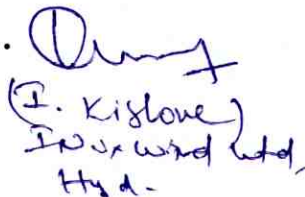 (I. Kishore)
Inox wind Ltd,
Hyd.